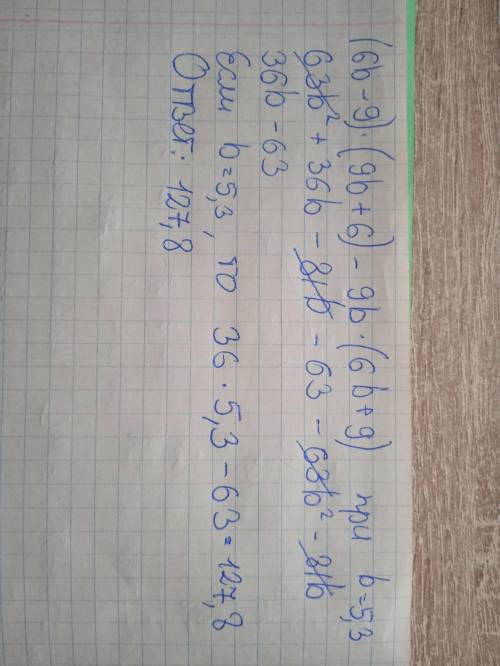 (6b-9)·(9b+6)-9b·(6b+9) при b=5,3
63b² + 36b - 81b - 63 - 63b² - 81b
36b - 63
Если b=5,3, то 36·5,3-63=127,8
Ответ: 127,8